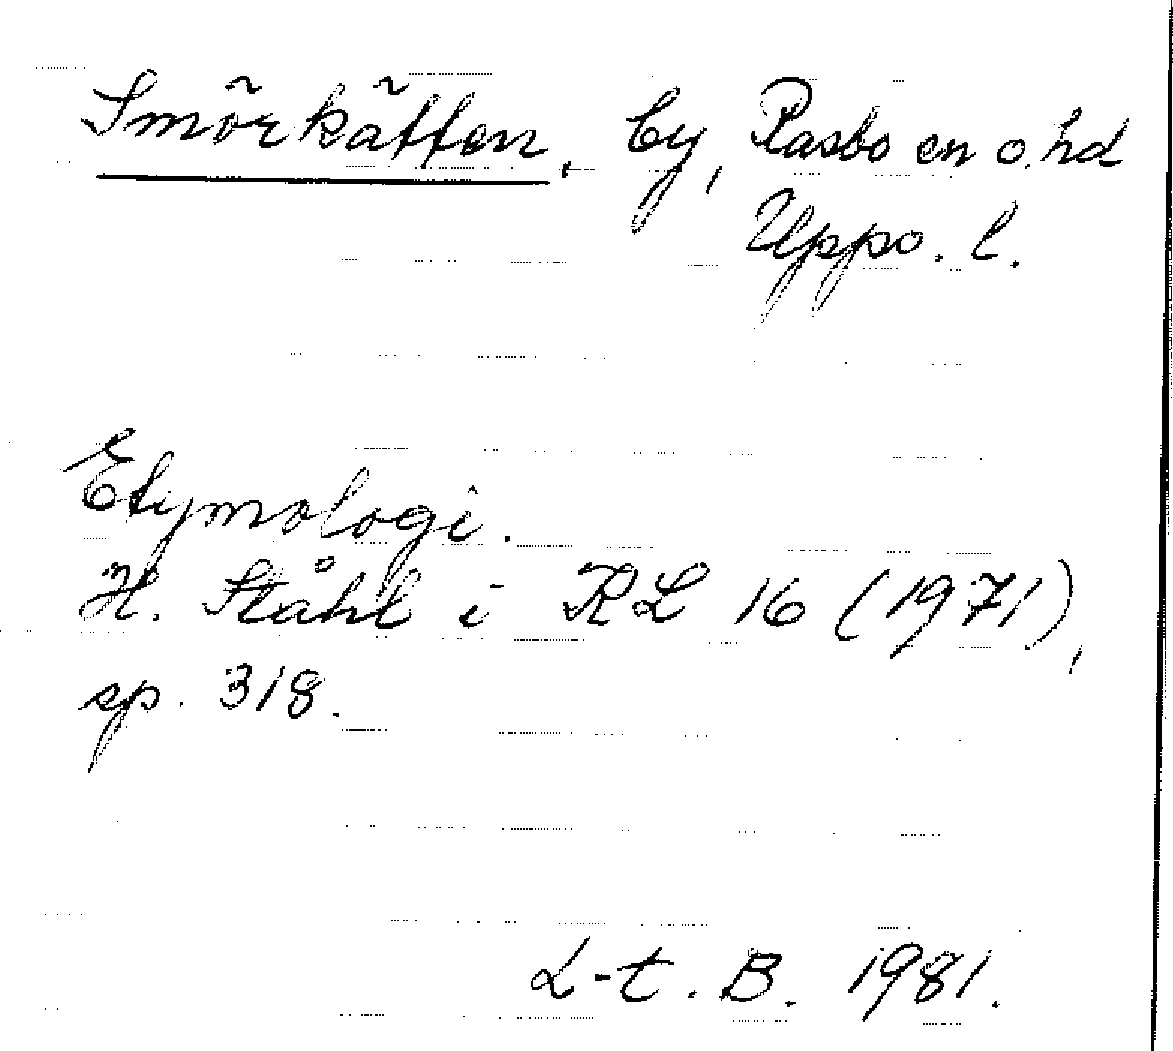 Smörkätten, by, Rasbo en o. hd
Uppo. l.
Etymologi.
H. Ståhl i RL 16 (1971),
sp. 318.
L-t. B. 1981.